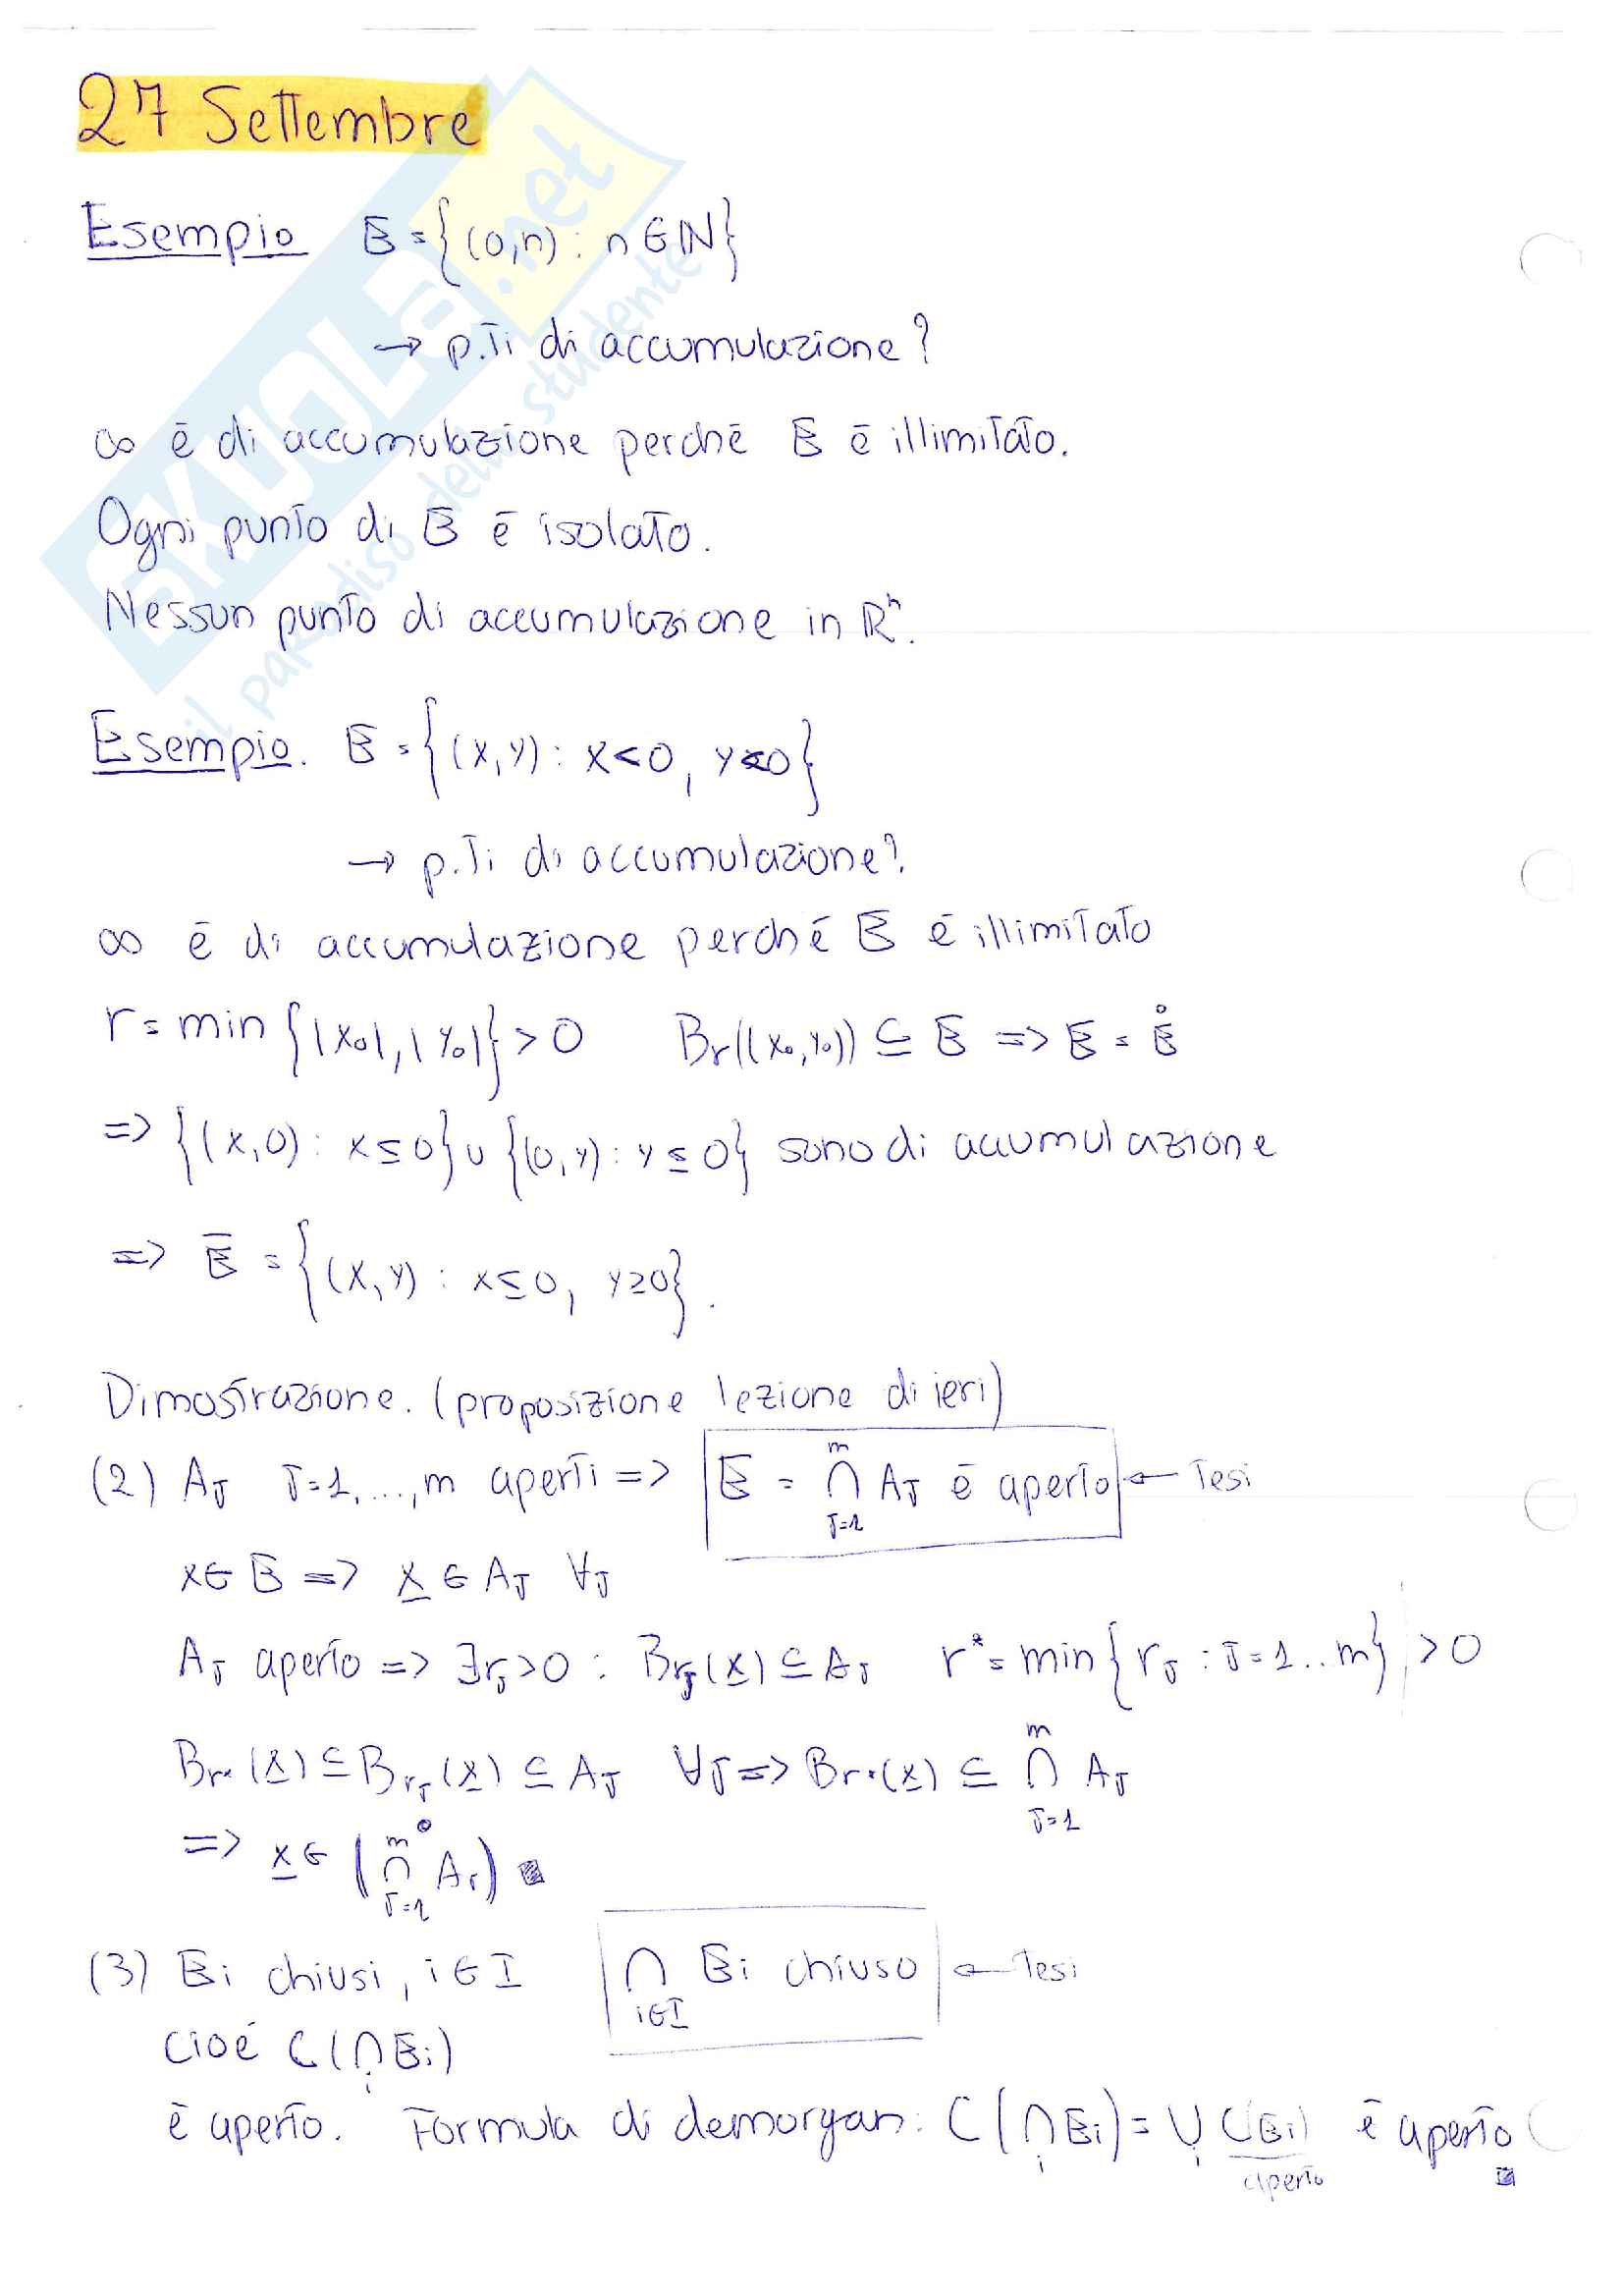 27 Settembre
Esempio E = {(0,n) : n ∈ ℕ}
→ p.ti di accumulazione?
∞ è di accumulazione perché E è illimitato.
Ogni punto di E è isolato.
Nessun punto di accumulazione in ℝⁿ.
Esempio. E = {(x,y) : x<0, y<0}
→ p.ti di accumulazione?
∞ è di accumulazione perché E è illimitato
r = min {|x₀|, |y₀|} > 0 Br((x₀,y₀)) ⊆ E => E = E̊
=> {(x,0) : x ≤ 0} ∪ {(0,y) : y ≤ 0} sono di accumulazione
=> E̅ = {(x,y) : x ≤ 0, y ≥ 0}.
Dimostrazione. (proposizione lezione di ieri)
(2) AJ J=1,...,m aperti => E = ⋂_{J=1}^{m} AJ è aperto ← Tesi
x ∈ E => x̲ ∈ AJ ∀J
AJ aperto => ∃rJ>0 : BrJ(x̲) ⊆ AJ r* = min{rJ : J=1..m} > 0
Br*(x̲) ⊆ BrJ(x̲) ⊆ AJ ∀J => Br*(x̲) ⊆ ⋂_{J=1}^{m} AJ
=> x̲ ∈ (⋂_{J=1}^{m} AJ)° ▨
(3) Ei chiusi, i ∈ I ⋂_{i∈I} Ei chiuso ← Tesi
cioè C(⋂_i Ei)
è aperto. Formula di demorgan: C(⋂_i Ei) = ⋃_i C(Ei) è aperto
aperto ▨
SKUOLA.net
il paradiso dello studente